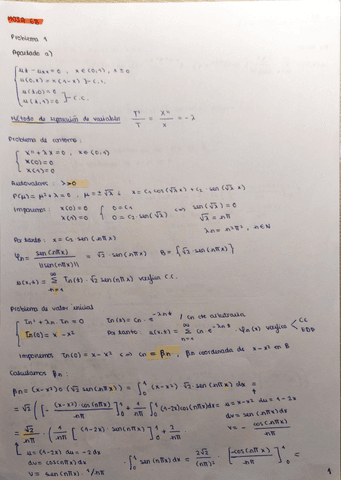 HOJA 6B
Problema 1
Apartado a)
ut - uxx = 0 , x ∈ (0,1) , t ≥ 0
u(0,x) = x(1-x) } - C.I.
u(t,0) = 0
u(t,1) = 0 } - C.C.
Método de separación de variables T'/T = X''/X = -λ
Problema de contorno:
X'' + λX = 0 , x ∈ (0,1)
X(0) = 0
X(1) = 0
Autovalores: λ>0
P(μ) = μ² + λ = 0 , μ = ±√λ i x = c₁ cos(√λ x) + c₂ · sen(√λ x)
Imponemos: X(0) = 0 0 = c₁ sen(√λ) = 0
X(1) = 0 0 = c₂ · sen(√λ) √λ = nπ
λn = n²π² , n ∈ ℕ
Por tanto: x = c₂ sen(nπx)
φn = sen(nπx)/||sen(nπx)|| = √2 · sen(nπx) B = {√2 · sen(nπx)}
u(t,x) = Σ Tn(t) · √2 sen(nπx) verifica C.C.
Problema de valor inicial
Tn' + λn · Tn = 0 Tn(t) = cn · e^-λnt / cn cte arbitraria
Tn(0) = x - x² Por tanto: u(t,x) = Σ cn · e^-λnt · φn(x) verifica CC EDP
Imponemos Tn(0) = x - x² cn = βn , βn coordenada de x - x² en B
Calculamos βn:
βn = (x-x²) · (√2 sen(nπx)) = ∫₀¹ (x-x²) · √2 · sen(nπx) dx =
= √2 ( [ - (x-x²) · cos(nπx)/nπ ]₀¹ + 1/nπ ∫₀¹ (1-2x) cos(nπx) dx = u = x-x² du = 1-2x
dv = sen(nπx)
v = - cos(nπx)/nπ
= √2/nπ · ( 1/nπ [ (1-2x) · sen(nπx) ]₀¹ + 2/nπ
u = (1-2x) du = -2dx
dv = cos(nπx) dx
v = sen(nπx) · 1/nπ
· ∫₀¹ sen(nπx) dx = 2√2/(nπ)² · [ -cos(nπx)/nπ ]₀¹ =
1